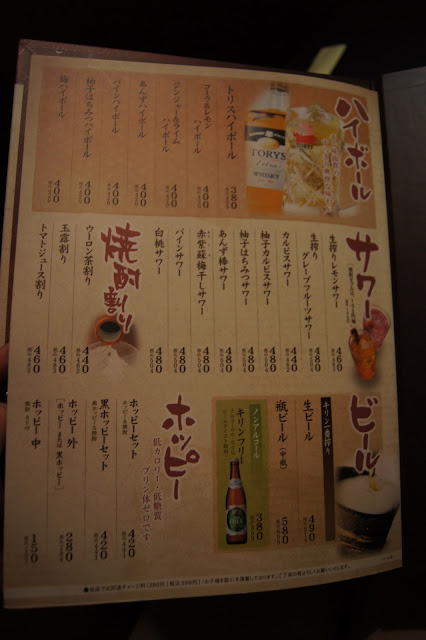 ハイボール
トリスハイボール
380
コーラ&レモン
ハイボール
400
ジンジャー&ライム
ハイボール
400
あんずハイボール
400
パインハイボール
400
柚子はちみつハイボール
400
梅ハイボール
400
TORYS
Extra
WHISKY
サワー
生搾りレモンサワー
460
生搾り
グレープフルーツサワー
カルピスサワー
440
柚子カルピスサワー
480
柚子はちみつサワー
480
あんず棒サワー
480
赤紫蘇梅干しサワー
480
パインサワー
480
白桃サワー
480
焼酎割り
ウーロン茶割り
440
玉露割り
460
トマトジュース割り
460
ビール
キリン一番搾り
生ビール
490
瓶ビール(中瓶)
580
ノンアルコール
キリンフリー
380
ホッピー
低カロリー・低糖質
プリン体ゼロです
ホッピーセット
420
黒ホッピーセット
420
ホッピー外
[ホッピーまたは黒ホッピー]
280
ホッピー中
150